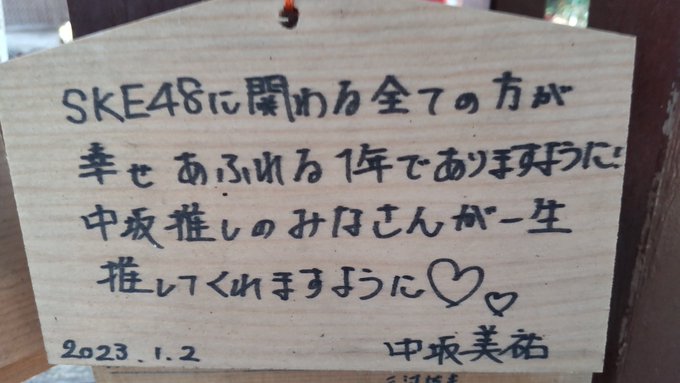 SKE48に関わる全ての方が
幸せあふれる1年でありますように!
中坂推しのみなさんが一生
推してくれますように♡♡
2023.1.2 中坂美祐